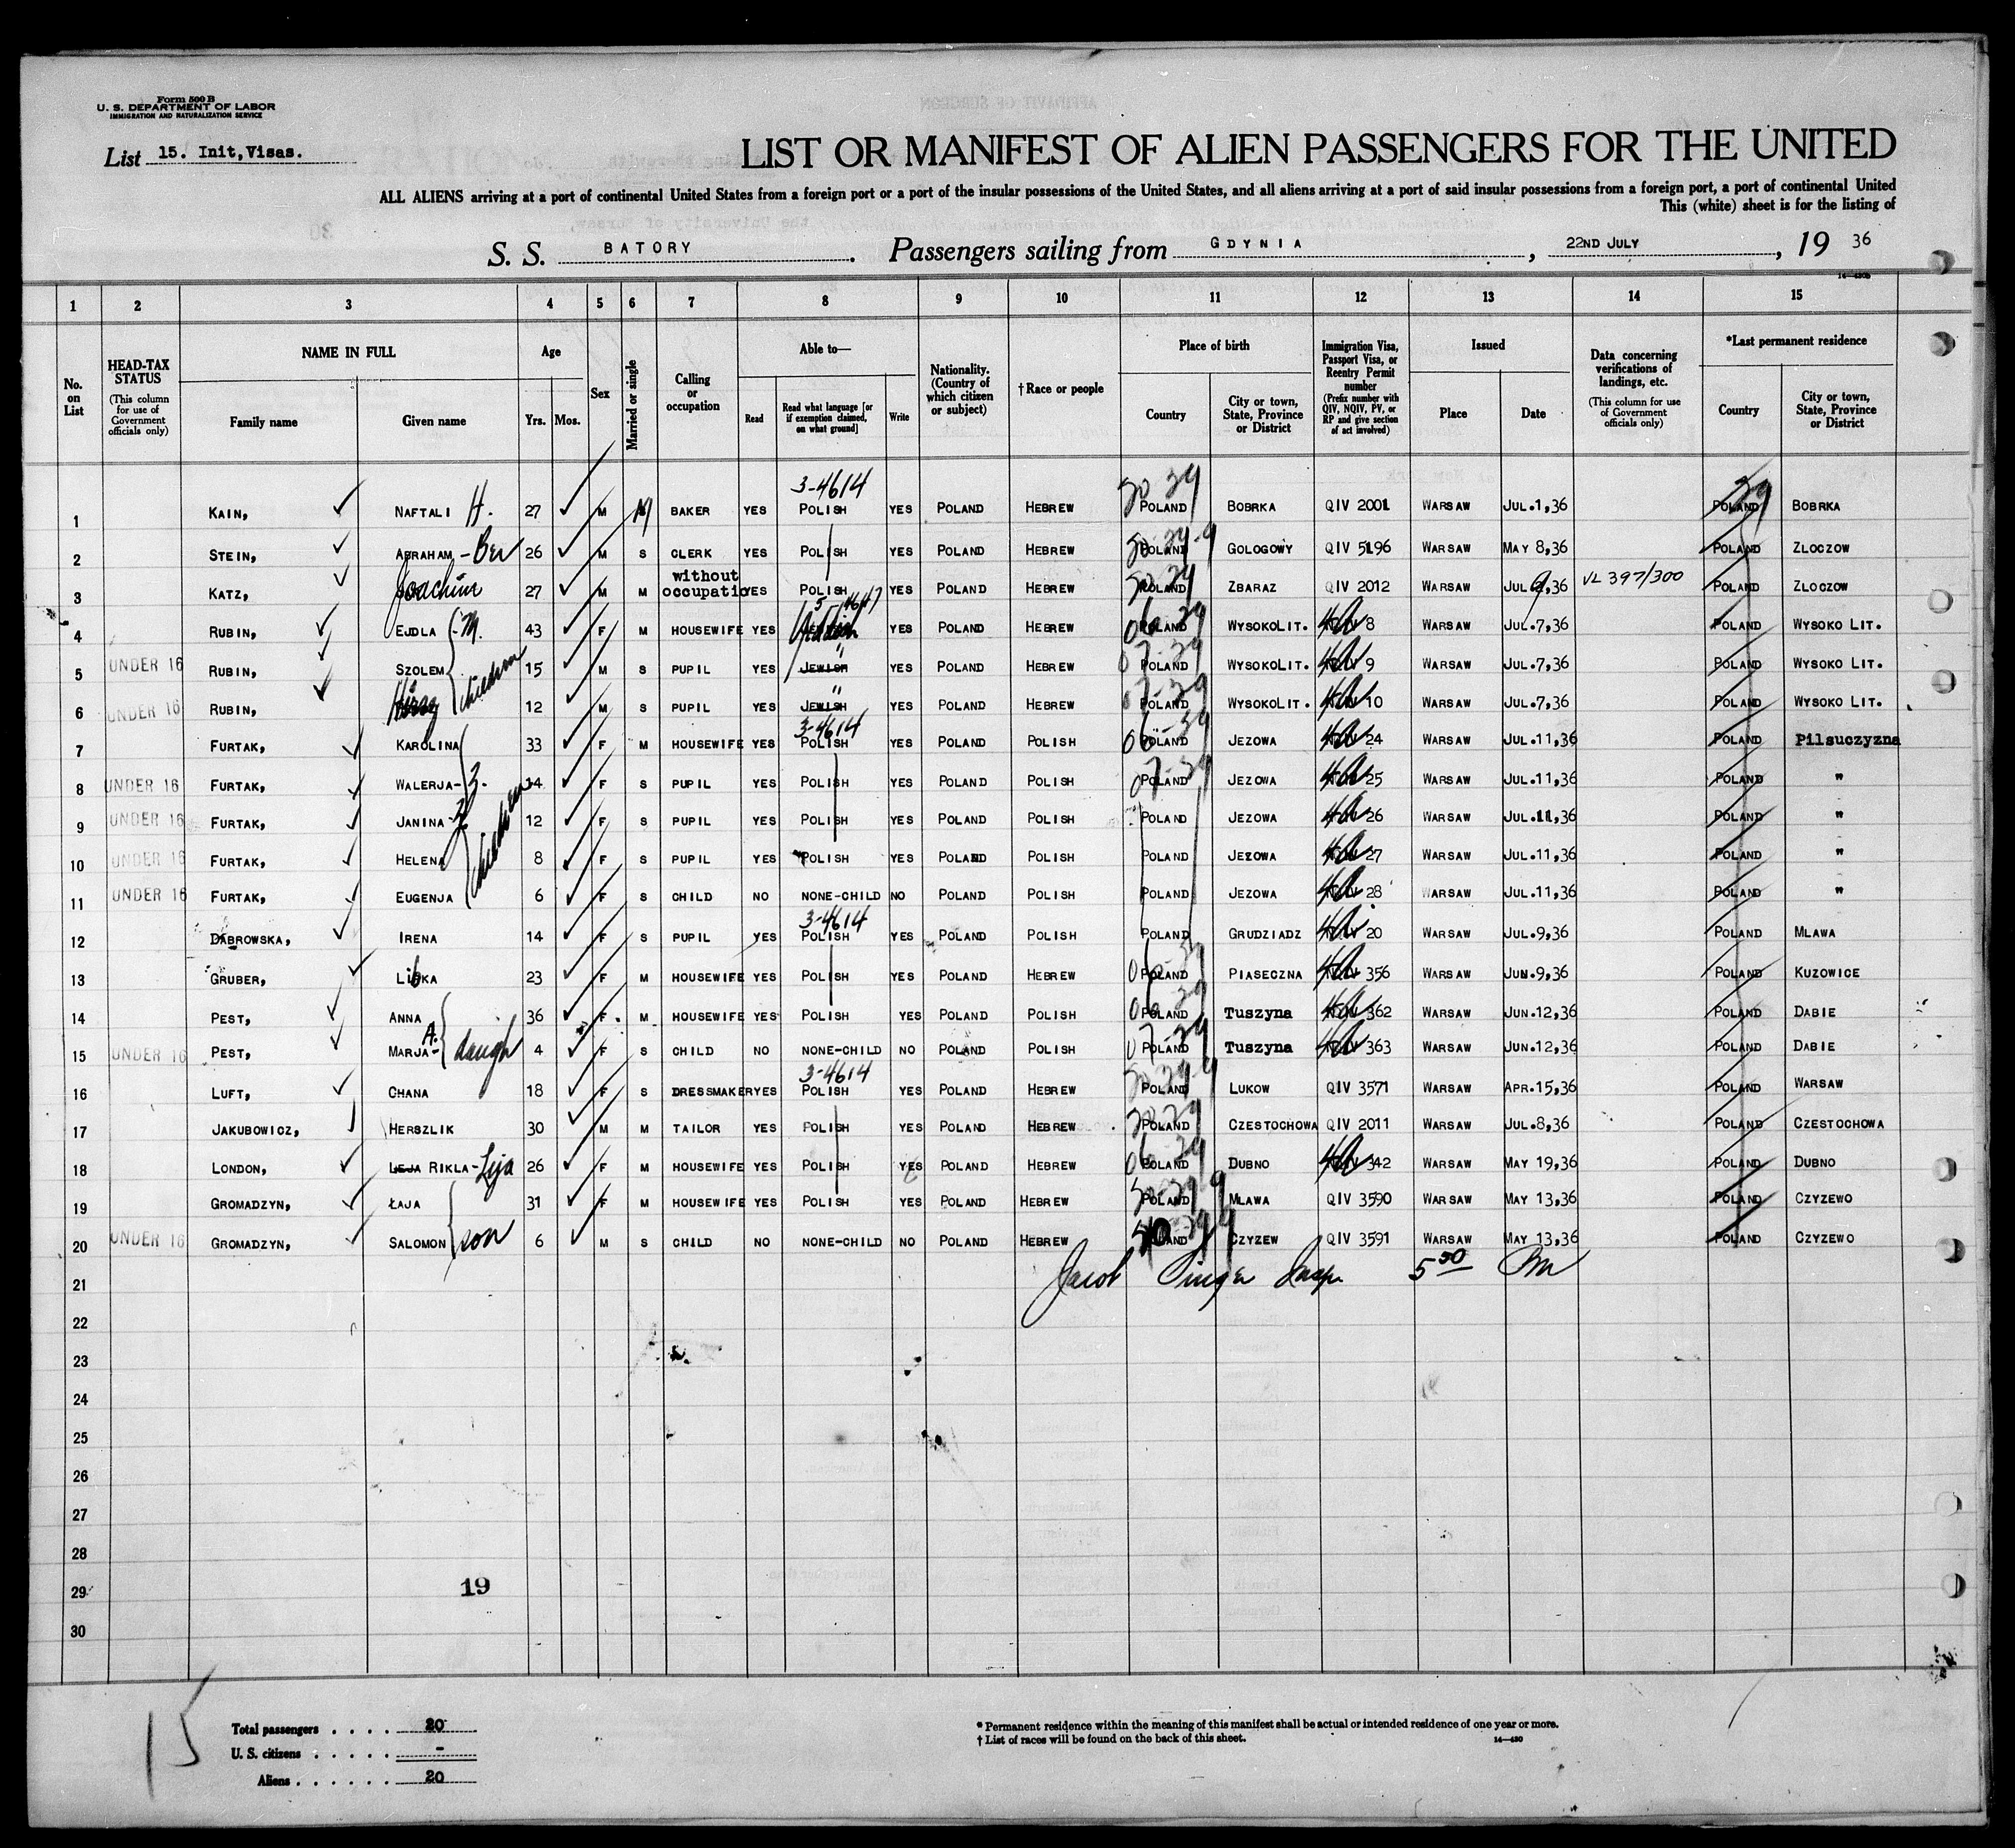 Form 500 B
U. S. DEPARTMENT OF LABOR
IMMIGRATION AND NATURALIZATION SERVICE
List 15. Init,Visas.
LIST OR MANIFEST OF ALIEN PASSENGERS FOR THE UNITED
ALL ALIENS arriving at a port of continental United States from a foreign port or a port of the insular possessions of the United States, and all aliens arriving at a port of said insular possessions from a foreign port, a port of continental United
This (white) sheet is for the listing of
S. S. BATORY. Passengers sailing from GDYNIA, 22ND JULY, 19 36
1 2 3 4 5 6 7 8 9 10 11 12 13 14 15
No. on List
HEAD-TAX STATUS (This column for use of Government officials only)
NAME IN FULL Family name Given name
Age Yrs. Mos.
Sex
Married or single
Calling or occupation
Able to— Read Read what language [or if exemption claimed, on what ground] Write
Nationality. (Country of which citizen or subject)
† Race or people
Place of birth Country City or town, State, Province or District
Immigration Visa, Passport Visa, or Reentry Permit number (Prefix number with QIV, NQIV, PV, or RP and give section of act involved)
Issued Place Date
Data concerning verifications of landings, etc. (This column for use of Government officials only)
*Last permanent residence Country City or town, State, Province or District
3-4614
1 KAIN, NAFTALI H. 27 M M BAKER YES POLISH YES POLAND HEBREW POLAND BOBRKA QIV 2001 WARSAW JUL.1,36 POLAND BOBRKA
2 STEIN, ABRAHAM - Ber 26 M S CLERK YES POLISH YES POLAND HEBREW POLAND GOLOGOWY QIV 5196 WARSAW MAY 8,36 POLAND ZLOCZOW
3 KATZ, Joachim 27 M M without occupatio YES POLISH YES POLAND HEBREW POLAND ZBARAZ QIV 2012 WARSAW JUL 9,36 VL 397/300 POLAND ZLOCZOW
4 RUBIN, EJDLA - M. 43 F M HOUSEWIFE YES YES POLAND HEBREW POLAND WYSOKOLIT. 8 WARSAW JUL.7,36 POLAND WYSOKO LIT.
5 UNDER 16 RUBIN, SZOLEM children 15 M S PUPIL YES JEWISH YES POLAND HEBREW POLAND WYSOKOLIT. 9 WARSAW JUL.7,36 POLAND WYSOKO LIT.
6 UNDER 16 RUBIN, Hersz 12 M S PUPIL YES JEWISH YES POLAND HEBREW POLAND WYSOKOLIT. 10 WARSAW JUL.7,36 POLAND WYSOKO LIT.
3-4614
7 FURTAK, KAROLINA 33 F M HOUSEWIFE YES POLISH YES POLAND POLISH POLAND JEZOWA 24 WARSAW JUL.11,36 POLAND Pilsuczyzna
8 UNDER 16 FURTAK, WALERJA - Z. 14 F S PUPIL YES POLISH YES POLAND POLISH POLAND JEZOWA 25 WARSAW JUL.11,36 POLAND "
9 UNDER 16 FURTAK, JANINA children 12 F S PUPIL YES POLISH YES POLAND POLISH POLAND JEZOWA 26 WARSAW JUL.11,36 POLAND "
10 UNDER 16 FURTAK, HELENA 8 F S PUPIL YES POLISH YES POLAND POLISH POLAND JEZOWA 27 WARSAW JUL.11,36 POLAND "
11 UNDER 16 FURTAK, EUGENJA 6 F S CHILD NO NONE-CHILD NO POLAND POLISH POLAND JEZOWA 28 WARSAW JUL.11,36 POLAND "
3-4614
12 DABROWSKA, IRENA 14 F S PUPIL YES POLISH YES POLAND POLISH POLAND GRUDZIADZ 20 WARSAW JUL.9,36 POLAND MLAWA
13 GRUBER, LIBKA 23 F M HOUSEWIFE YES POLISH YES POLAND HEBREW POLAND PIASECZNA 356 WARSAW JUN.9,36 POLAND KUZOWICE
14 PEST, ANNA 36 F M HOUSEWIFE YES POLISH YES POLAND POLISH POLAND Tuszyna 362 WARSAW JUN.12,36 POLAND DABIE
15 UNDER 16 PEST, MARJA - A. daugh 4 F S CHILD NO NONE-CHILD NO POLAND POLISH POLAND Tuszyna 363 WARSAW JUN.12,36 POLAND DABIE
3-4614
16 LUFT, CHANA 18 F S DRESSMAKER YES POLISH YES POLAND HEBREW POLAND LUKOW QIV 3571 WARSAW APR.15,36 POLAND WARSAW
17 JAKUBOWICZ, HERSZLIK 30 M M TAILOR YES POLISH YES POLAND HEBREW POLAND CZESTOCHOWA QIV 2011 WARSAW JUL.8,36 POLAND CZESTOCHOWA
18 LONDON, LEJA RIKLA - Leja 26 F M HOUSEWIFE YES POLISH YES POLAND HEBREW POLAND DUBNO 342 WARSAW MAY 19,36 POLAND DUBNO
19 GROMADZYN, ŁAJA 31 F M HOUSEWIFE YES POLISH YES POLAND HEBREW POLAND MLAWA QIV 3590 WARSAW MAY 13,36 POLAND CZYZEWO
20 UNDER 16 GROMADZYN, SALOMON son 6 M S CHILD NO NONE-CHILD NO POLAND HEBREW POLAND CZYZEW QIV 3591 WARSAW MAY 13,36 POLAND CZYZEWO
21 Jacob Singer Insp 5 30 Pm
22
23
24
25
26
27
28
29 19
30
15
Total passengers . . . . 20
U. S. citizens . . . . . -
Aliens . . . . . . 20
* Permanent residence within the meaning of this manifest shall be actual or intended residence of one year or more.
† List of races will be found on the back of this sheet. 14—480